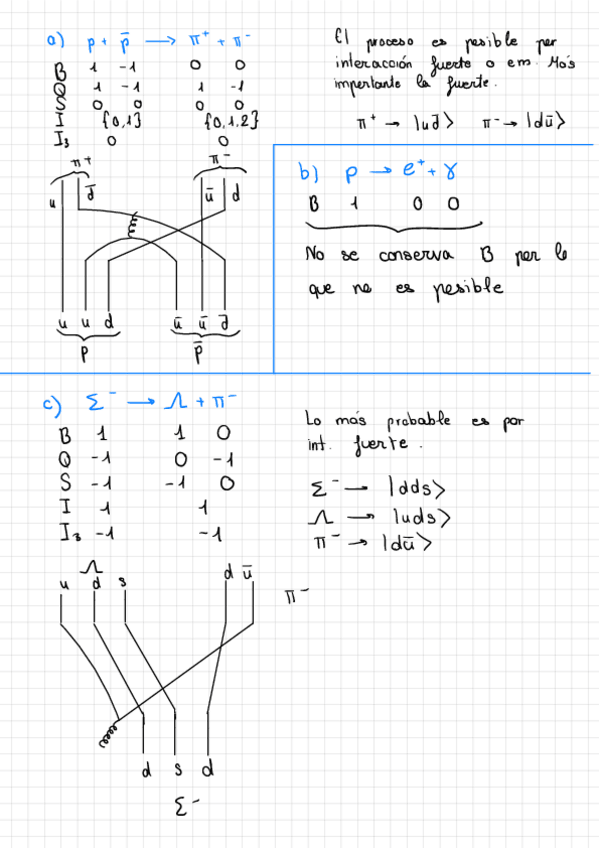 a) p + p̄ → π⁺ + π⁻
B 1 -1 0 0
Q 1 -1 1 -1
S 0 0 0 0
I {0,1} {0,1,2}
I₃ 0 0
El proceso es posible por
interacción fuerte o em. Más
importante la fuerte.
π⁺ → |ud̄⟩ π⁻ → |dū⟩
π⁺ π⁻
u d̄ ū d
u u d ū ū d̄
p p̄
b) p → e⁺ + γ
B 1 0 0
No se conserva B por lo
que no es posible
c) Σ⁻ → Λ + π⁻
B 1 1 0
Q -1 0 -1
S -1 -1 0
I 1 1
I₃ -1 -1
Lo más probable es por
int. fuerte.
Σ⁻ → |dds⟩
Λ → |uds⟩
π⁻ → |dū⟩
Λ
u d s d ū π⁻
d s d
Σ⁻